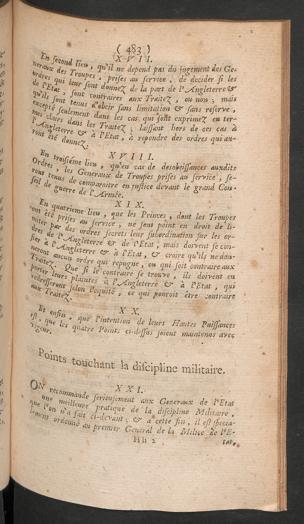 ( 483 )
XVII.
En second lieu, qu'il ne depend pas du jugement des Ge-
neraux des Troupes, prises au service, de decider si les
ordres qui leur sont donnez de la part de l'Angleterre &
de l'Etat, sont contraires aux Traitez, ou non; mais
qu'ils sont tenus d'obeir sans limitation & sans reserve,
excepté seulement dans les cas qui sont exprimez en ter-
mes clairs dans les Traitez; laissant hors de ces cas à
l'Angleterre & à l'Etat, à repondre des ordres qui au-
ront été donnez.
XVIII.
En troisiéme lieu, qu'en cas de desobeissances ausdits
Ordres, les Generaux de Troupes prises au service, se-
ront tenus de comparoitre en justice devant le grand Con-
seil de guerre de l'Armée.
XIX.
En quatriéme lieu, que les Princes, dont les Troupes
ont été prises au service, ne sont point en droit de li-
miter par des ordres secrets leur subordination sur les or-
dres de l'Angleterre & de l'Etat; mais doivent se con-
fier à l'Angleterre & à l'Etat, & croire qu'ils ne don-
neront aucun ordre qui repugne, ou qui soit contraire aux
Traitez. Que si le contraire se trouve, ils doivent en
porter leurs plaintes à l'Angleterre & à l'Etat, qui
redresseront selon l'equité, ce qui pourroit être contraire
aux Traitez.
XX.
Et enfin, que l'intention de leurs Hautes Puissances
est, que les quatre Points ci-dessus soient maintenus avec
vigueur.
Points touchant la discipline militaire.
XXI.
ON recommande serieusement aux Generaux de l'Etat
une meilleure pratique de la discipline Militaire,
que l'on n'a fait ci-devant; & à cette fin, il est specia-
lement ordonné au premier General de la Milice de l'E-
Hh 2
tat,